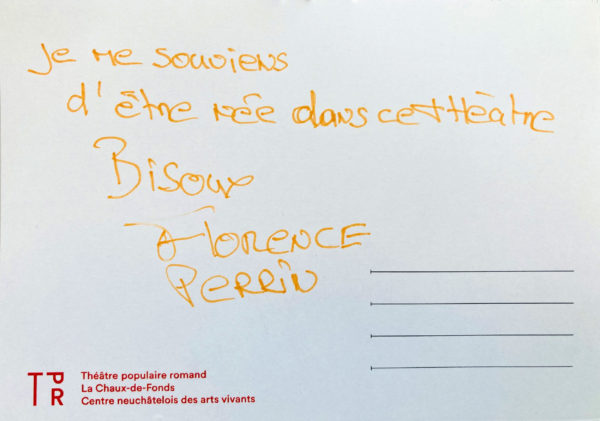 Je me souviens
d'être née dans ce théâtre
Bisoux
Florence
Perrin
TPR
Théâtre populaire romand
La Chaux-de-Fonds
Centre neuchâtelois des arts vivants